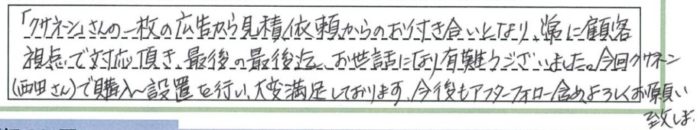 「クサネン」さんの一枚の広告から見積依頼からのお付き合いとなり、常に顧客
視点で対応頂き、最後の最後迄、お世話になり有難うございました。今回クサネン
(西田さん)で購入〜設置を行い、大変満足しております。今後もアフターフォロー含めよろしくお願い
致しま